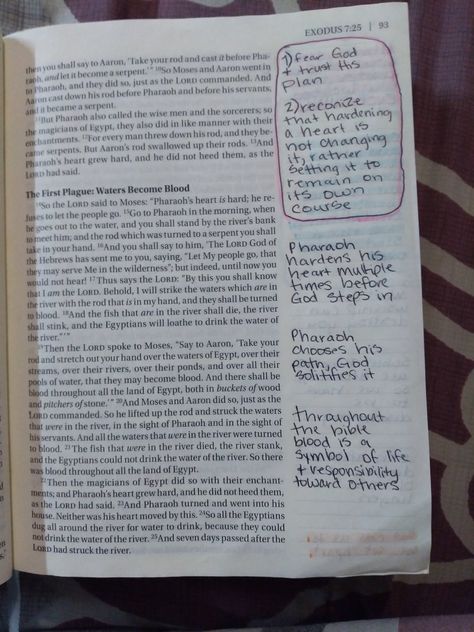 EXODUS 7:25 | 93
then you shall say to Aaron, 'Take your rod and cast it before Pha-
raoh, and let it become a serpent.'" 10So Moses and Aaron went in
to Pharaoh, and they did so, just as the LORD commanded. And
Aaron cast down his rod before Pharaoh and before his servants,
and it became a serpent.
11But Pharaoh also called the wise men and the sorcerers; so
the magicians of Egypt, they also did in like manner with their
enchantments. 12For every man threw down his rod, and they be-
came serpents. But Aaron's rod swallowed up their rods. 13And
Pharaoh's heart grew hard, and he did not heed them, as the
LORD had said.
The First Plague: Waters Become Blood
14So the LORD said to Moses: "Pharaoh's heart is hard; he re-
fuses to let the people go. 15Go to Pharaoh in the morning, when
he goes out to the water, and you shall stand by the river's bank
to meet him; and the rod which was turned to a serpent you shall
take in your hand. 16And you shall say to him, 'The LORD God of
the Hebrews has sent me to you, saying, "Let My people go, that
they may serve Me in the wilderness"; but indeed, until now you
would not hear! 17Thus says the LORD: "By this you shall know
that I am the LORD. Behold, I will strike the waters which are in
the river with the rod that is in my hand, and they shall be turned
to blood. 18And the fish that are in the river shall die, the river
shall stink, and the Egyptians will loathe to drink the water of
the river."'"
19Then the LORD spoke to Moses, "Say to Aaron, 'Take your
rod and stretch out your hand over the waters of Egypt, over their
streams, over their rivers, over their ponds, and over all their
pools of water, that they may become blood. And there shall be
blood throughout all the land of Egypt, both in buckets of wood
and pitchers of stone.'" 20And Moses and Aaron did so, just as the
LORD commanded. So he lifted up the rod and struck the waters
that were in the river, in the sight of Pharaoh and in the sight of
his servants. And all the waters that were in the river were turned
to blood. 21The fish that were in the river died, the river stank,
and the Egyptians could not drink the water of the river. So there
was blood throughout all the land of Egypt.
22Then the magicians of Egypt did so with their enchant-
ments; and Pharaoh's heart grew hard, and he did not heed them,
as the LORD had said. 23And Pharaoh turned and went into his
house. Neither was his heart moved by this. 24So all the Egyptians
dug all around the river for water to drink, because they could
not drink the water of the river. 25And seven days passed after the
LORD had struck the river.
1) fear God
+ trust His
plan
2) reconize
that hardening
a heart is
not changing
it, rather,
setting it to
remain on
its own
course
Pharaoh
hardens his
heart multiple
times before
God steps in
Pharaoh
chooses his
path, God
solitifies it
throughout
the bible
blood is a
symbol of life
+ responsibility
toward others